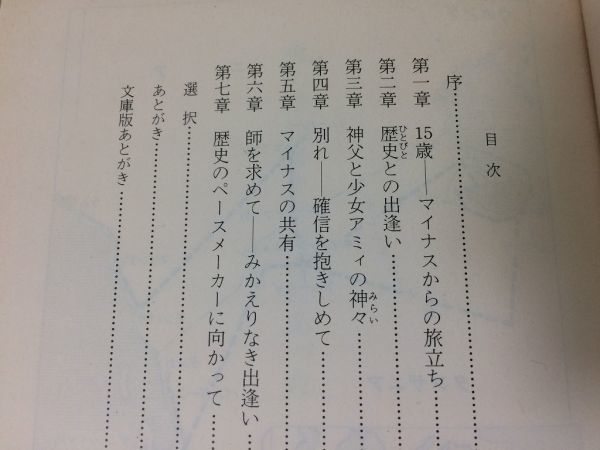 目次
序
第一章 15歳――マイナスからの旅立ち
第二章 歴史との出逢い
ひとびと
第三章 神父と少女アミィの神々
みらい
第四章 別れ――確信を抱きしめて
第五章 マイナスの共有
第六章 師を求めて――みかえりなき出逢い
第七章 歴史のペースメーカーに向かって
選択
あとがき
文庫版あとがき